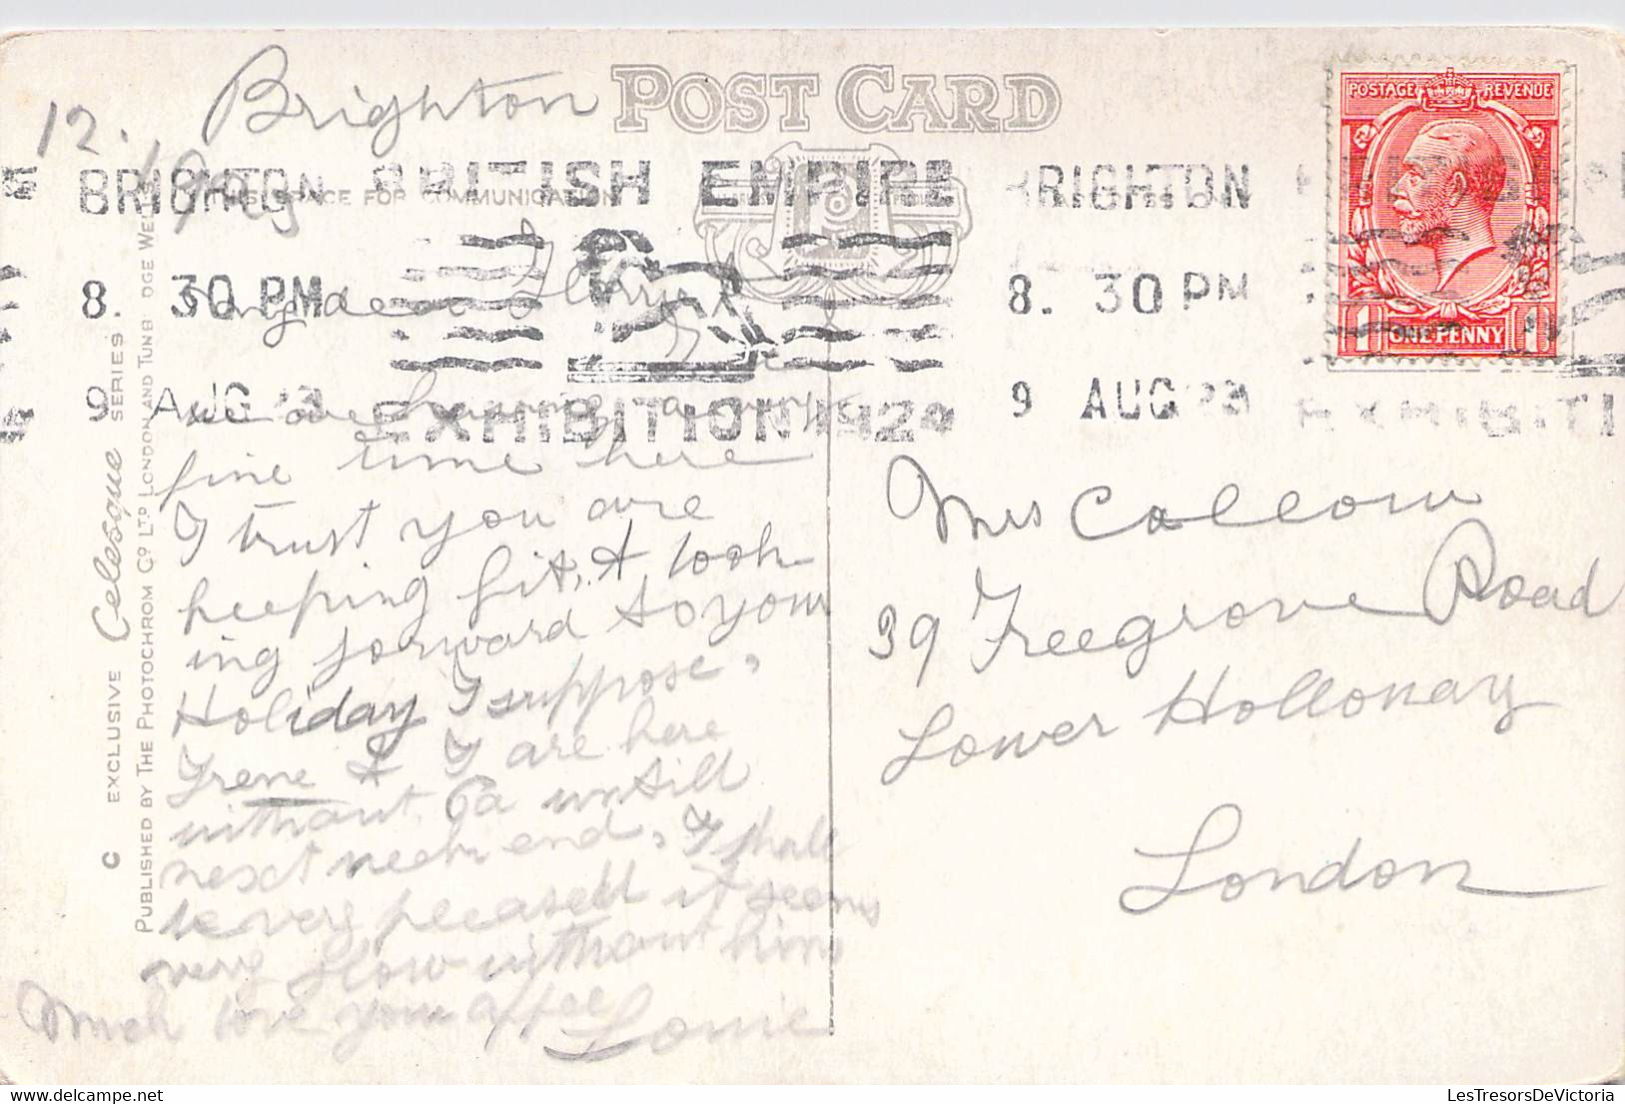 Brighton
POST CARD
12.
THIS SPACE FOR COMMUNICATION
BRIGHTON BRITISH EMPIRE
8. 30 PM
9 AUG 23 EXHIBITION 1924
BRIGHTON
8. 30 PM
9 AUG 23
EXHIBITI
POSTAGE REVENUE
1 ONE PENNY 1
My dear
we are having a very
fine time here
I trust you are
keeping fit, & look-
ing forward to your
Holiday I suppose,
Irene & I are here
without Pa untill
next week end, I shall
be very pleased it seems
very slow without him,
Much love your affec
Louie
Mrs Calcow
39 Freegrove Road
Lower Holloway
London
C EXCLUSIVE Celesque SERIES
PUBLISHED BY THE PHOTOCHROM CO LTD LONDON AND TUNB DGE WELLS
LesTresorsDeVictoria.com